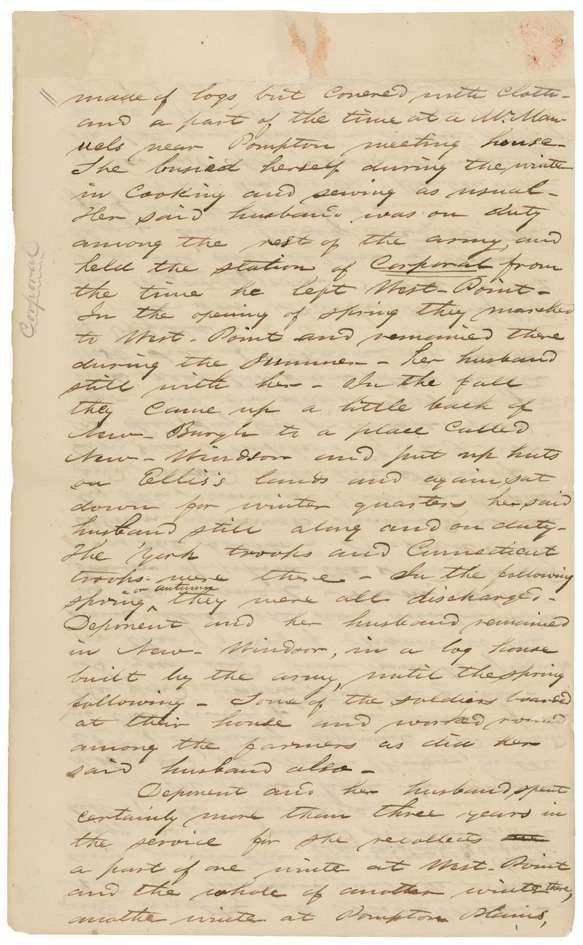 made of logs, but covered with cloth -
and a part of the time at a Mr. Man-
uels near Pompton meeting house -
She busied herself during the winter
in cooking and sewing as usual -
Her said husband was on duty
among the rest of the army and
held the station of Corporal from
the time he left West-Point -
In the opening of spring they marched
to West-Point and remained there
during the Summer - her husband
still with her - In the fall
they came up a little back of
New-Burgh to a place called
New-Windsor and put up huts
on Ellis's lands and again sat
down for winter quarters, her said
husband still along and on duty -
The York troops and Connecticut
troops were there - In the following
spring or autumn they were all discharged -
Deponent and her husband remained
in New-Windsor, in a log house
built by the army, until the spring
following - Some of the soldiers boarded
at their house and worked round
among the farmers as did her
said husband also -
Deponent and her husband spent
certainly more than three years in
the service for she recollects
a part of one winte at West-Point
and the whole of another winte there,
anothe winte at Pompton Plains,
Corporal